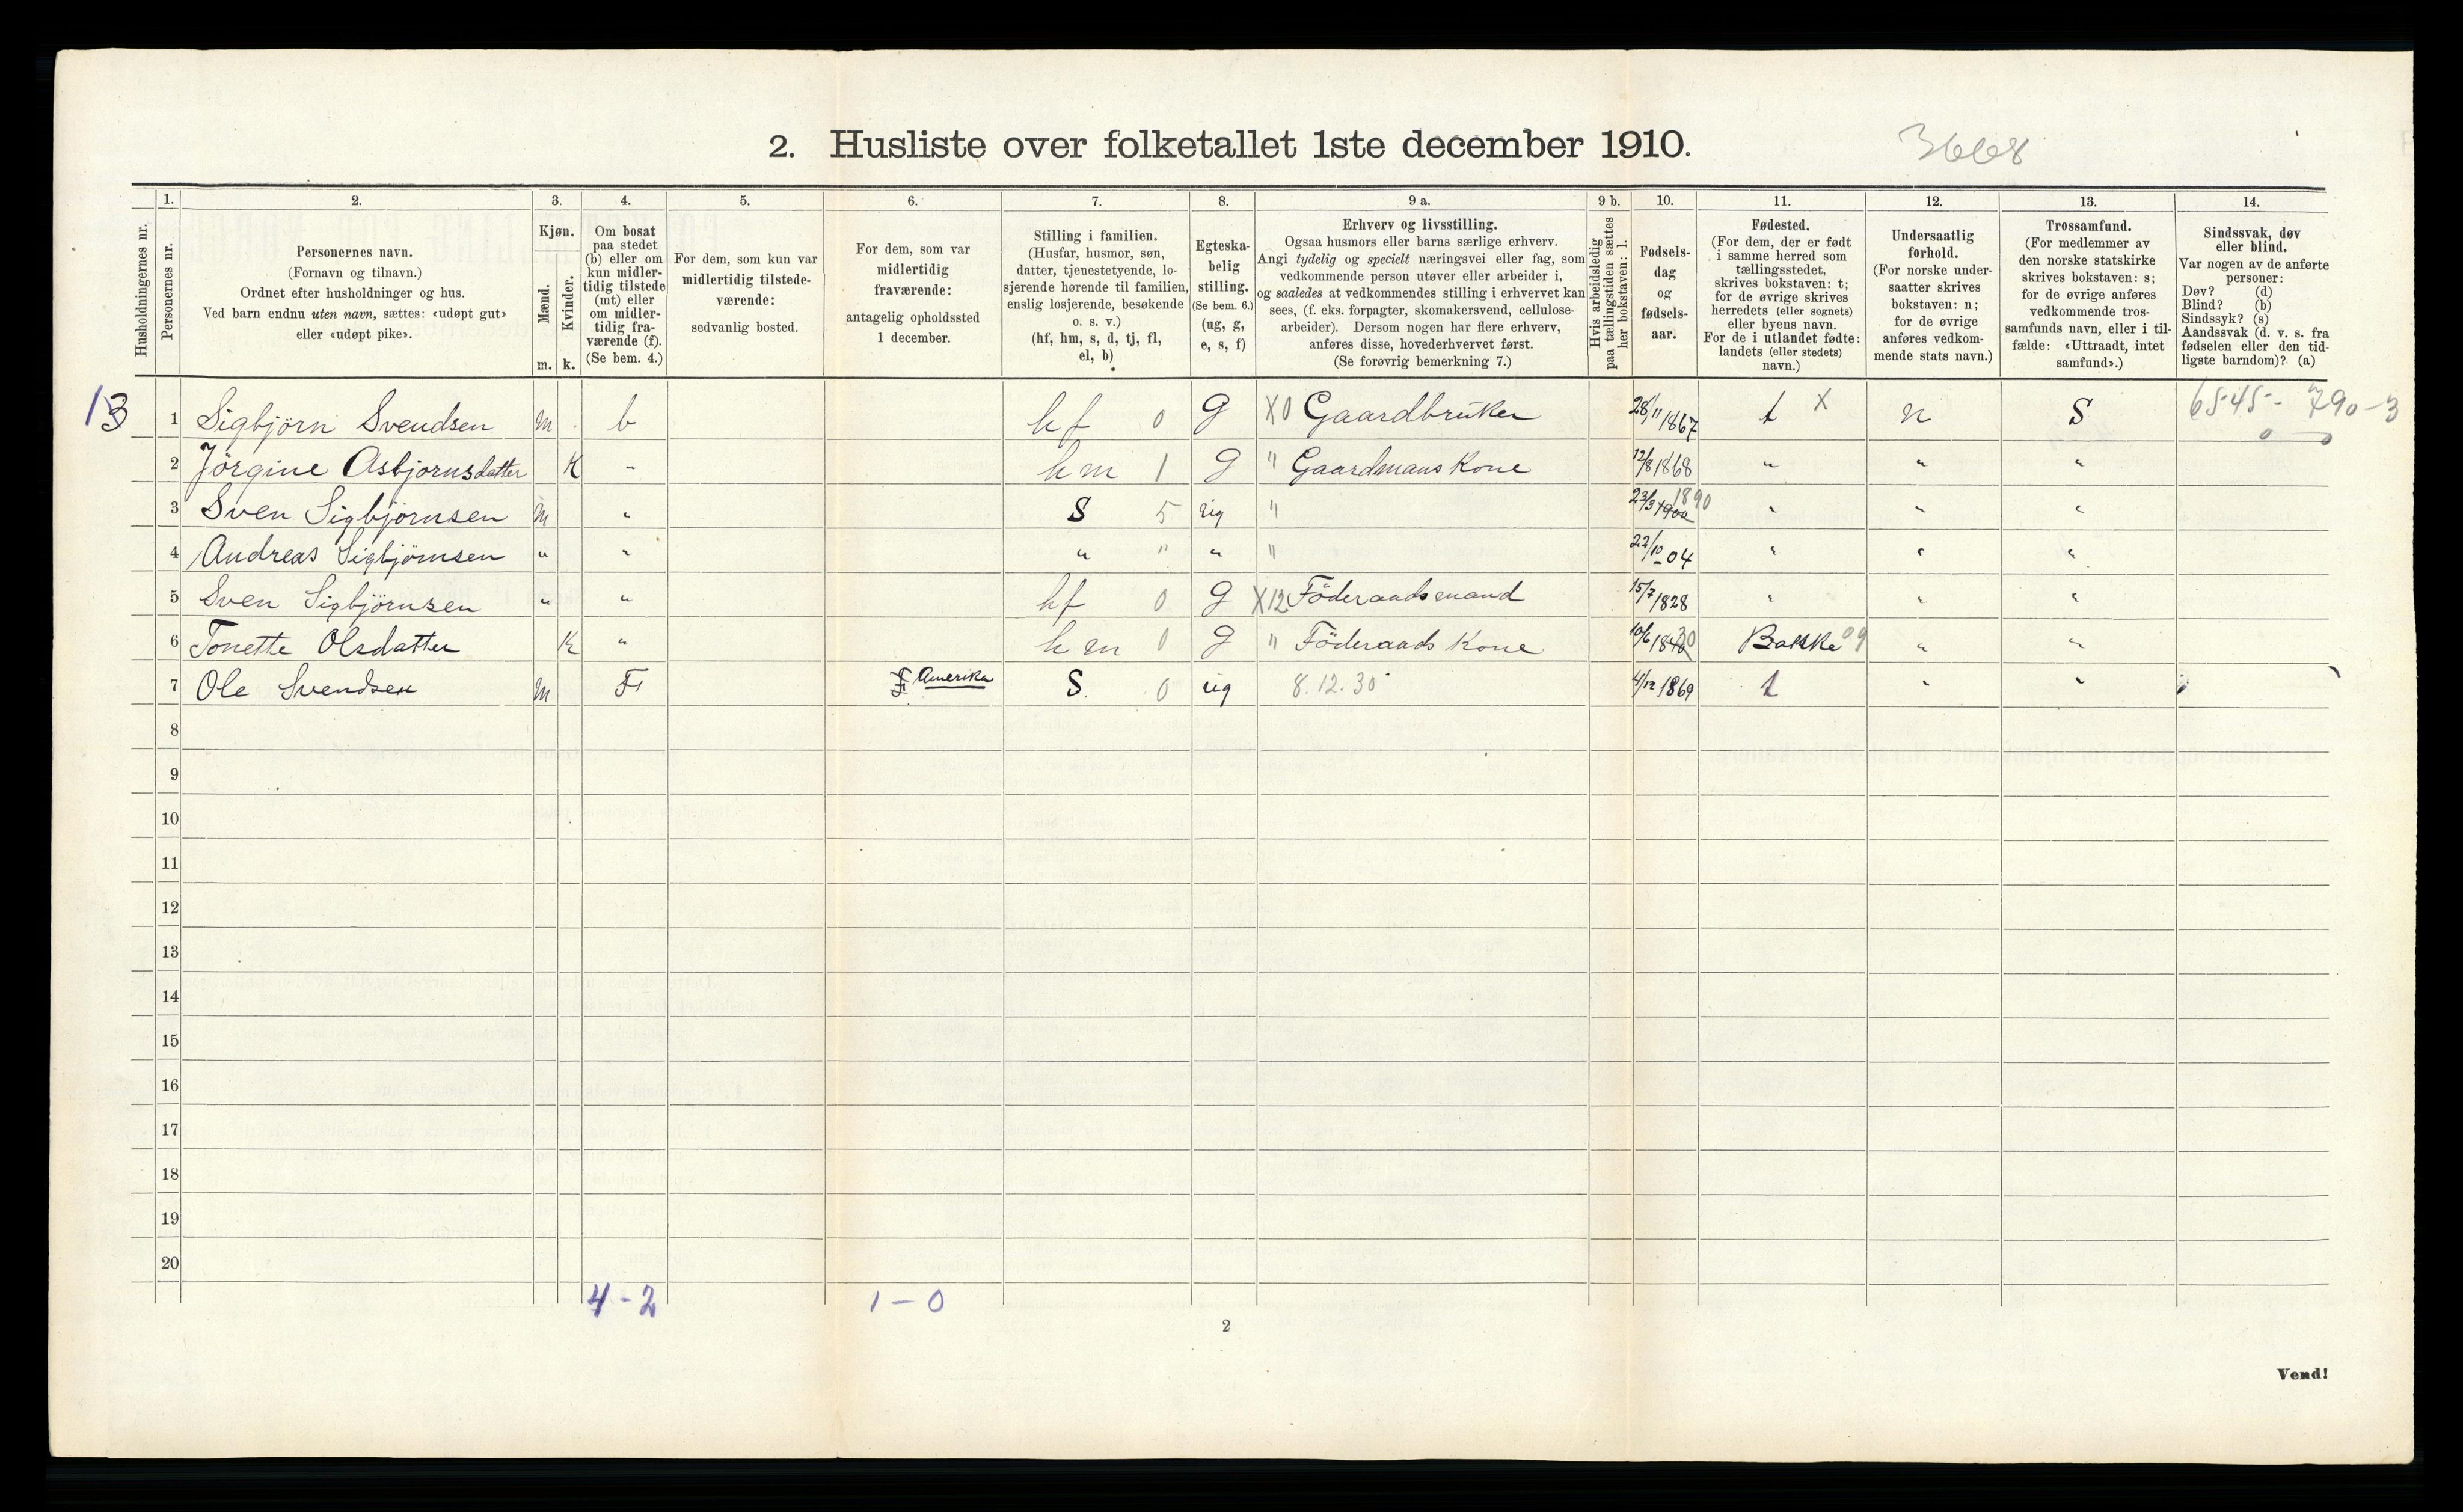 2. Husliste over folketallet 1ste december 1910.
3668
Husholdningernes nr.
1.
Personernes nr.
2.
Personernes navn.
(Fornavn og tilnavn.)
Ordnet efter husholdninger og hus.
Ved barn endnu uten navn, sættes: «udøpt gut»
eller «udøpt pike».
3.
Kjøn.
Mænd.
Kvinder.
m. k.
4.
Om bosat
paa stedet
(b) eller om
kun midler-
tidig tilstede
(mt) eller
om midler-
tidig fra-
værende (f).
(Se bem. 4.)
5.
For dem, som kun var
midlertidig tilstede-
værende:
sedvanlig bosted.
6.
For dem, som var
midlertidig
fraværende:
antagelig opholdssted
1 december.
7.
Stilling i familien.
(Husfar, husmor, søn,
datter, tjenestetyende, lo-
sjerende hørende til familien,
enslig losjerende, besøkende
o. s. v.)
(hf, hm, s, d, tj, fl,
el, b)
8.
Egteska-
belig
stilling.
(Se bem. 6.)
(ug, g,
e, s, f)
9 a.
Erhverv og livsstilling.
Ogsaa husmors eller barns særlige erhverv.
Angi tydelig og specielt næringsvei eller fag, som
vedkommende person utøver eller arbeider i,
og saaledes at vedkommendes stilling i erhvervet kan
sees, (f. eks. forpagter, skomakersvend, cellulose-
arbeider). Dersom nogen har flere erhverv,
anføres disse, hovederhvervet først.
(Se forøvrig bemerkning 7.)
9 b.
Hvis arbeidsledig
paa tællingstiden sættes
her bokstaven: l.
10.
Fødsels-
dag
og
fødsels-
aar.
11.
Fødested.
(For dem, der er født
i samme herred som
tællingsstedet,
skrives bokstaven: t;
for de øvrige skrives
herredets (eller sognets)
eller byens navn.
For de i utlandet fødte:
landets (eller stedets)
navn.)
12.
Undersaatlig
forhold.
(For norske under-
saatter skrives
bokstaven: n;
for de øvrige
anføres vedkom-
mende stats navn.)
13.
Trossamfund.
(For medlemmer av
den norske statskirke
skrives bokstaven: s;
for de øvrige anføres
vedkommende tros-
samfunds navn, eller i til-
fælde: «Uttraadt, intet
samfund».)
14.
Sindssvak, døv
eller blind.
Var nogen av de anførte
personer:
Døv? (d)
Blind? (b)
Sindssyk? (s)
Aandssvak (d. v. s. fra
fødselen eller den tid-
ligste barndom)? (a)
13 1 Sigbjörn Svendsen m b hf 0 g X0 Gaardbruker 28/11 1867 t X n S 6545- 790-3
0 0
2 Jörgine Asbjornsdatter K " hm 1 g " Gaardmans Kone 12/8 1868 " " "
3 Sven Sigbjörnsen m " S 5 ug " 23/3 1900 1890 " " "
4 Andreas Sigbjörnsen " " " " " " 22/10-04 " " "
5 Sven Sigbjörnsen " " hf 0 g X12 Föderaadsmand 15/7 1828 " " "
6 Tonette Olsdatter K " hm 0 g " Föderaads Kone 10/6 1840 30 Bakke 09 " "
7 Ole Svendsen m F Amerika S 0 ug 8.12.30 4/12 1869 t " "
8
9
10
11
12
13
14
15
16
17
18
19
20
4-2 1-0
2
Vend!